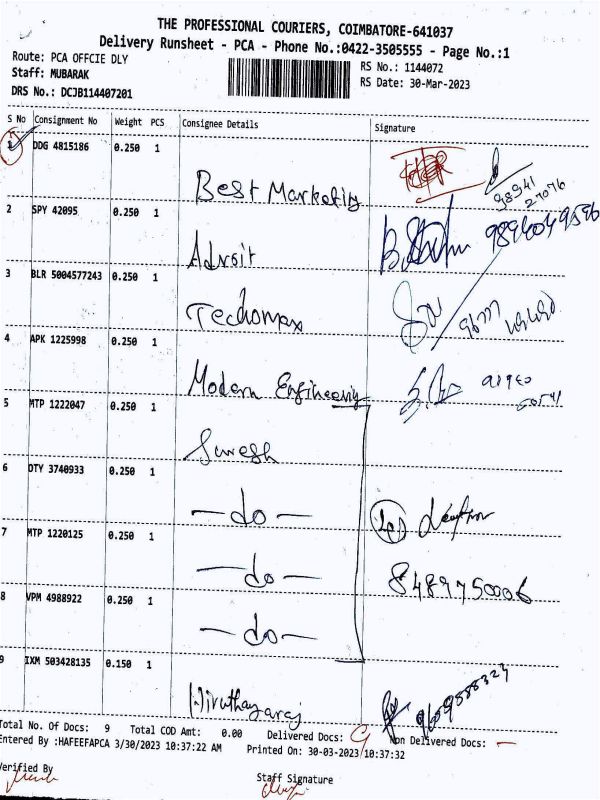 THE PROFESSIONAL COURIERS, COIMBATORE-641037
Delivery Runsheet - PCA - Phone No.:0422-3505555 - Page No.:1
Route: PCA OFFCIE DLY
Staff: MUBARAK
DRS No.: DCJB114407201
RS No.: 1144072
RS Date: 30-Mar-2023
S No Consignment No Weight PCS Consignee Details Signature
1 DDG 4815186 0.250 1
Best Marketing
98941
27076
2 SPY 42095 0.250 1
Adroit
3 BLR 5004577243 0.250 1
Techomax
4 APK 1225998 0.250 1
Modern Engineering
5 MTP 1222047 0.250 1
Suresh
6 OTY 3740933 0.250 1
—do—
7 MTP 1220125 0.250 1
—do—
8489750006
8 VPM 4988922 0.250 1
—do—
9 IXM 503428135 0.150 1
Hiruthayaraj
Total No. Of Docs: 9 Total COD Amt: 0.00 Delivered Docs: 9 Non Delivered Docs: —
Entered By :HAFEEFAPCA 3/30/2023 10:37:22 AM Printed On: 30-03-2023 10:37:32
Verified By
Staff Signature